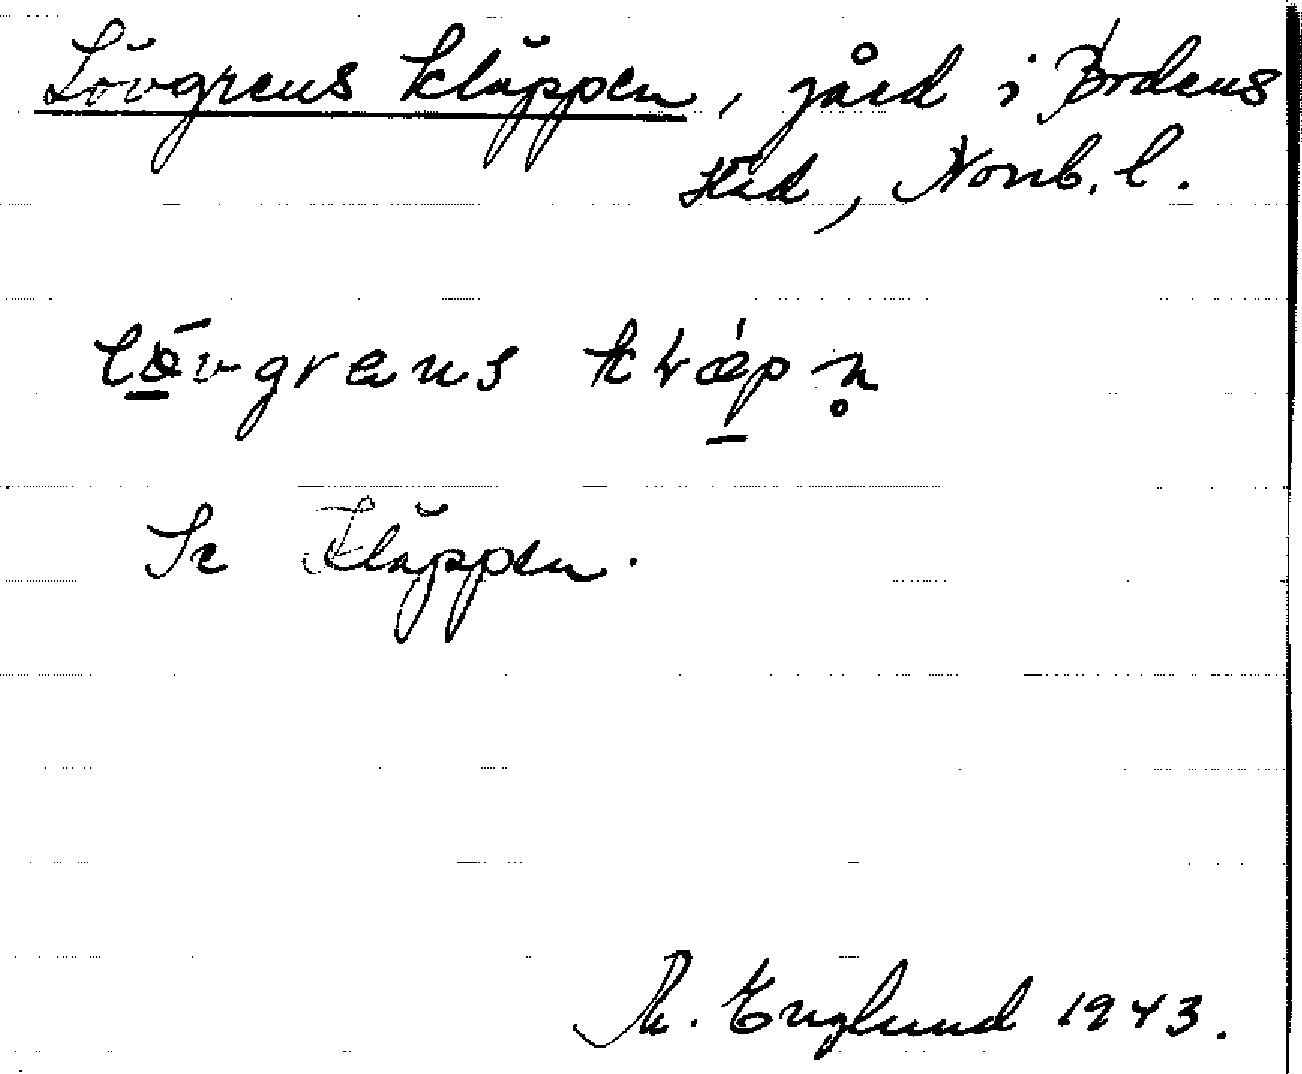 Lövgrens kläppen, gård i Bodens
stad, Norrb. l.
lœvgrens kɽæpn̥
Se Kläppen.
R. Englund 1943.